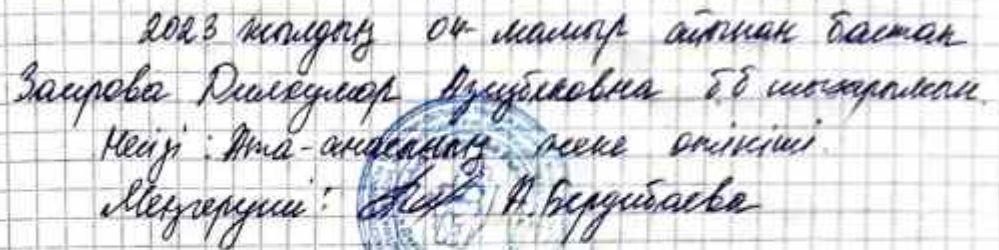 2023 жылдың 04 мамыр айынан бастап
Заирова Дилдумор Азизбековна бб шығарылсын.
Негізі: Ата-анасының жеке өтініші.
Меңгеруші: А. Бердибаева